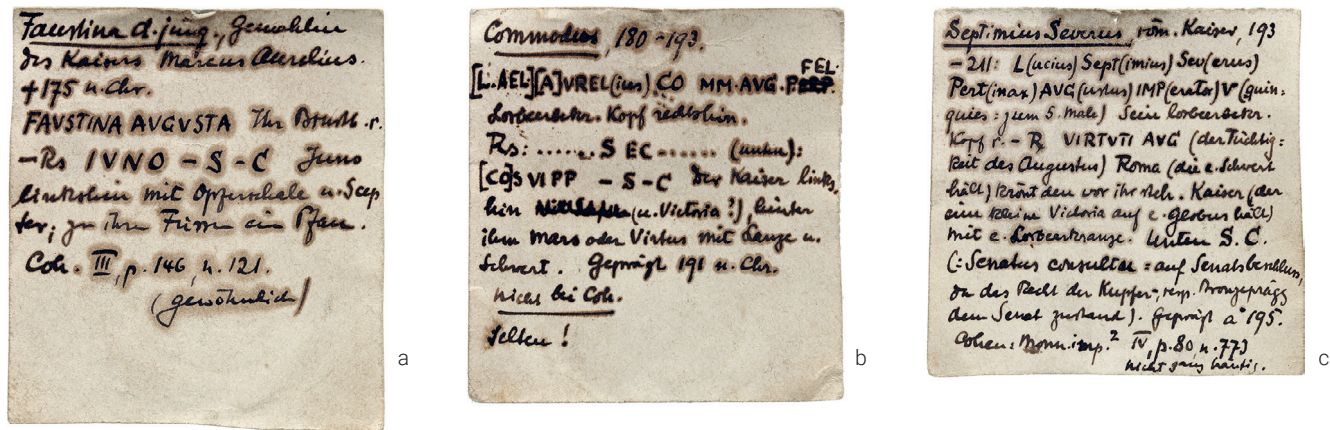 Faustina d. jüng., Gemahlin
des Kaisers Marcus Aurelius.
+175 n. Chr.
FAVSTINA AVGVSTA Ihr Brustb. r.
– Rs IVNO – S – C Juno
linkshin mit Opferschale u. Scep
ter; zu ihren Füssen ein Pfau.
Coh. III, p. 146, n. 121.
(gewöhnlich)
a
Commodus, 180–193.
FEL.
[L. AEL][A]VREL(ius) CO MM. AVG. P.
Lorbeerbekr. Kopf rechtshin.
Rs: ....... S EC ...... (unten):
[CO]S VI PP – S – C Der Kaiser links
hin (u. Victoria?), hinter
ihm Mars oder Virtus mit Lanze u.
Schwert. Geprägt 191 n. Chr.
nicht bei Coh.
Selten!
b
Septimius Severus, röm. Kaiser, 193
– 211: L(ucius) Sept(imius) Sev(erus)
Pert(inax) AVG(ustus) IMP(erator) V (quin-
quies: zum 5. male) Sein lorbeerbekr.
Kopf r. – R VIRTVTI AVG (der Tüchtig=
keit des Augustus) Roma (die e. Schwert
hält) krönt den vor ihr steh. Kaiser (der
eine kleine Victoria auf e. Globus hält)
mit e. Lorbeerkranze. Unten S. C.
(: Senatus consulto = auf Senatsbeschluss,
da das Recht der Kupfer-, resp. Bronzeprägg
dem Senat zustand). Geprägt a° 195.
Cohen: Monn. imp.² IV, p. 80, n. 773
nicht ganz häufig.
c